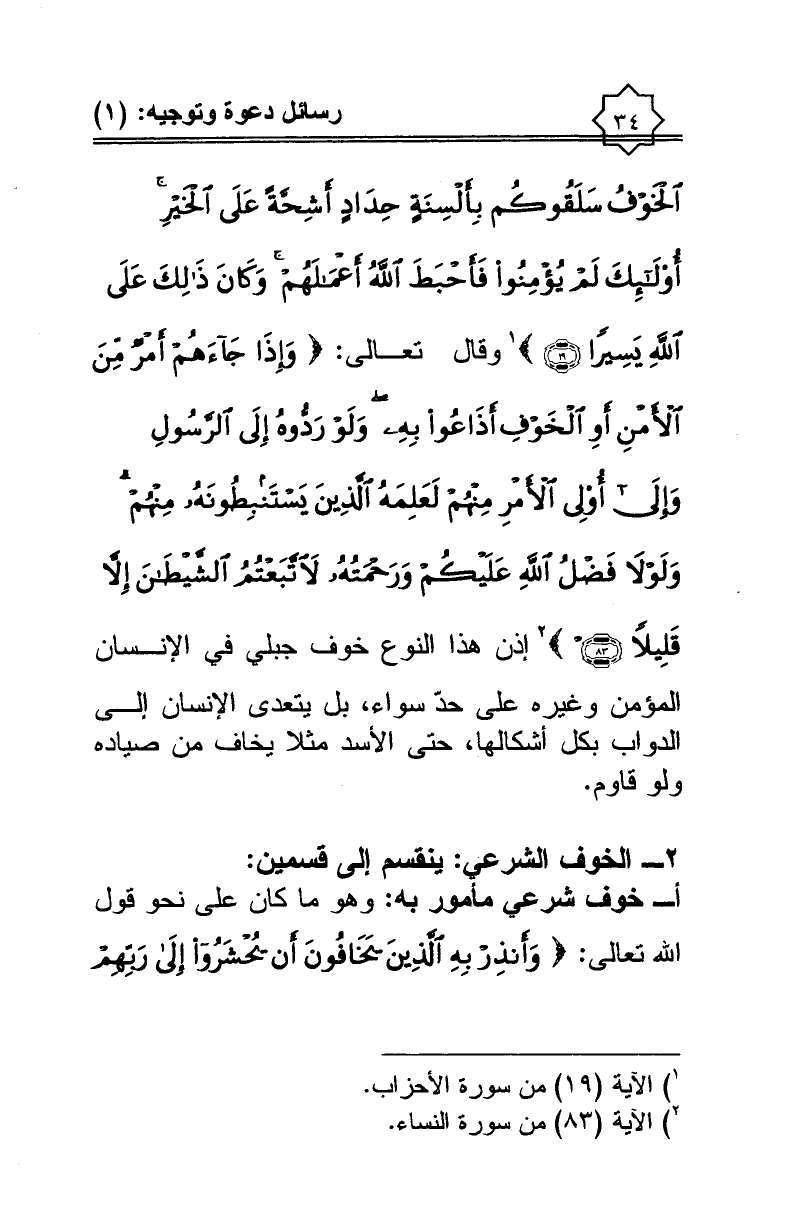 ٣٤ رسائل دعوة وتوجيه: (١)
ٱلْخَوْفُ سَلَقُوكُم بِأَلْسِنَةٍ حِدَادٍ أَشِحَّةً عَلَى ٱلْخَيْرِ ۚ
أُوْلَـٰٓئِكَ لَمْ يُؤْمِنُوا۟ فَأَحْبَطَ ٱللَّهُ أَعْمَـٰلَهُمْ ۚ وَكَانَ ذَٰلِكَ عَلَى
ٱللَّهِ يَسِيرًا ﴿١٩﴾ ﴾١ وقال تعـــالى: ﴿ وَإِذَا جَآءَهُمْ أَمْرٌ مِّنَ
ٱلْأَمْنِ أَوِ ٱلْخَوْفِ أَذَاعُوا۟ بِهِۦ ۖ وَلَوْ رَدُّوهُ إِلَى ٱلرَّسُولِ
وَإِلَىٰٓ أُوْلِى ٱلْأَمْرِ مِنْهُمْ لَعَلِمَهُ ٱلَّذِينَ يَسْتَنۢبِطُونَهُۥ مِنْهُمْ ۗ
وَلَوْلَا فَضْلُ ٱللَّهِ عَلَيْكُمْ وَرَحْمَتُهُۥ لَٱتَّبَعْتُمُ ٱلشَّيْطَـٰنَ إِلَّا
قَلِيلًا ﴿٨٣﴾ ﴾٢ إذن هذا النوع خوف جبلي في الإنـــسان
المؤمن وغيره على حدّ سواء، بل يتعدى الإنسان إلـــى
الدواب بكل أشكالها، حتى الأسد مثلا يخاف من صياده
ولو قاوم.
٢ــ الخوف الشرعي: ينقسم إلى قسمين:
أــ خوف شرعي مأمور به: وهو ما كان على نحو قول
الله تعالى: ﴿ وَأَنذِرْ بِهِ ٱلَّذِينَ يَخَافُونَ أَن يُحْشَرُوٓا۟ إِلَىٰ رَبِّهِمْ
١) الآية (١٩) من سورة الأحزاب.
٢) الآية (٨٣) من سورة النساء.